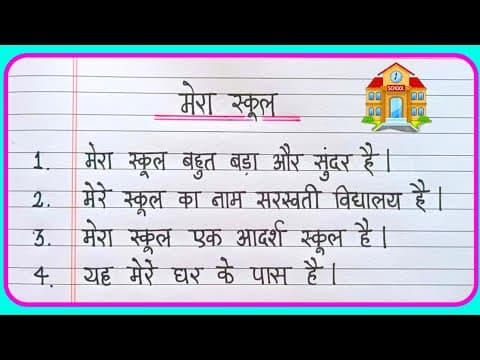 SCHOOL
मेरा स्कूल
1. मेरा स्कूल बहुत बड़ा और सुंदर है।
2. मेरे स्कूल का नाम सरस्वती विद्यालय है।
3. मेरा स्कूल एक आदर्श स्कूल है।
4. यह मेरे घर के पास है।